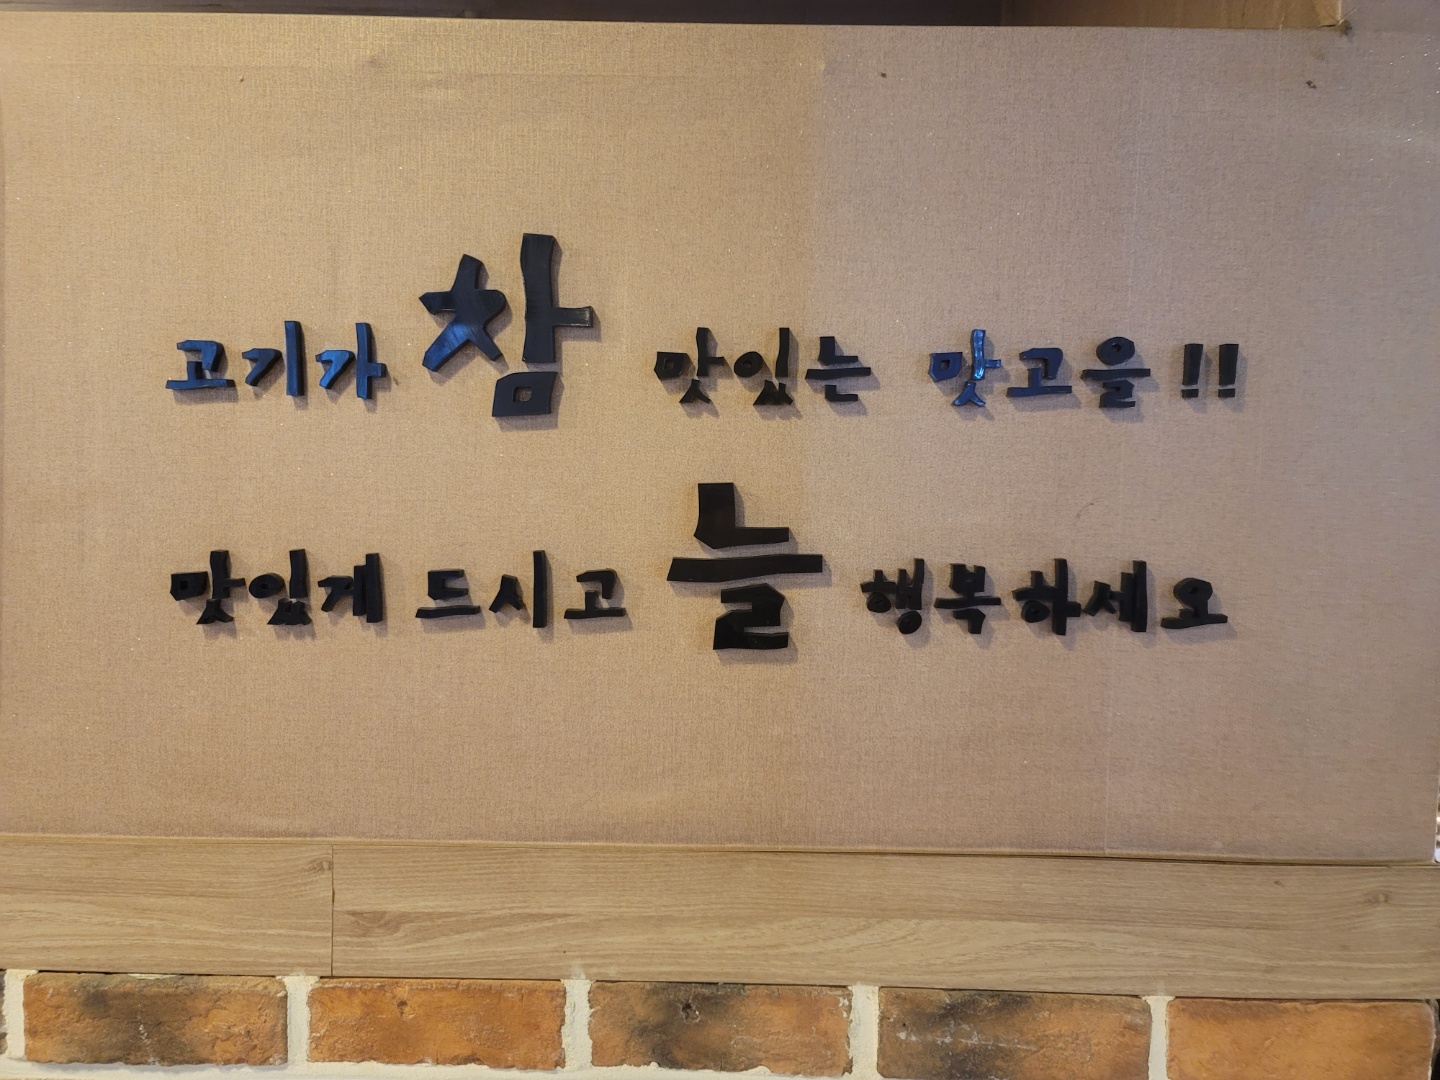 고기가 참 맛있는 맛고을!!
맛있게 드시고 늘 행복하세요